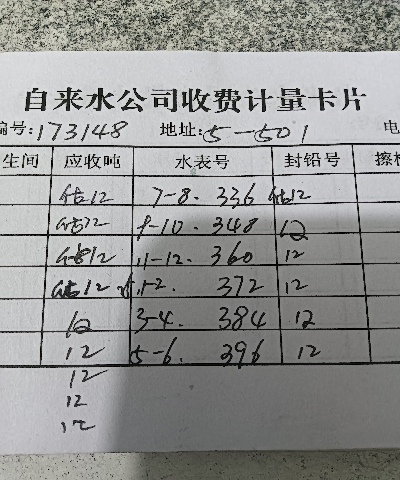 自来水公司收费计量卡片
编号:173148 地址:5-501 电
生间 应收吨 水表号 封铅号 擦
估12 7-8. 336 估12
估12 9-10. 348 12
估12 11-12. 360 12
估12 1-2. 372 12
12 3-4. 384 12
12 5-6. 396 12
12
12
12